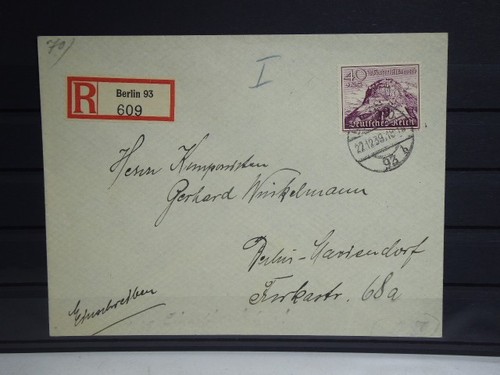 I
R
Berlin 93
609
40
Deutsches Reich
22.12.39
93 b
Herrn Komponisten
Gerhard Winkelmann
Berlin-Mariendorf
Furkastr. 68a
Einschreiben